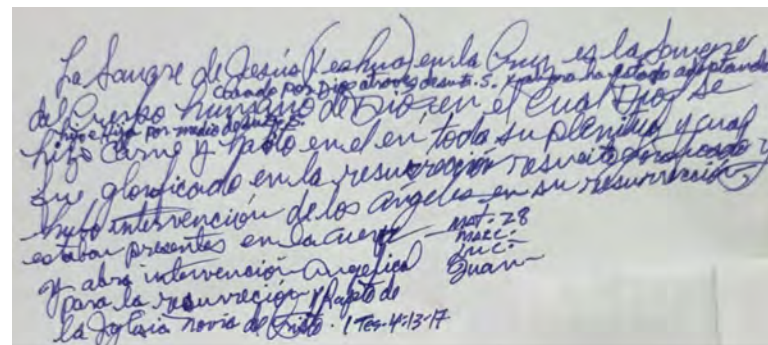 La Sangre de Jesús (Yeshua) en la Cruz es la Sangre
Creado por Dios atraves de su E.S. y ha estado adoptando
del Cuerpo humano de Dios en el Cual Dios se
hijo e hija por medio de su E.S.
hizo Carne y habló en el en toda su plenitud y cual
fue glorificado en la resurrección resucito glorificado y
hubo intervención de los angeles en su resurrección
estaban presentes en la cueva — MAT: 28
y abra intervención Angelica MARC:
para la resurreción y Rapto de LUC: Juan
la Iglesia novia de Cristo. 1 Tes. 4:13-17